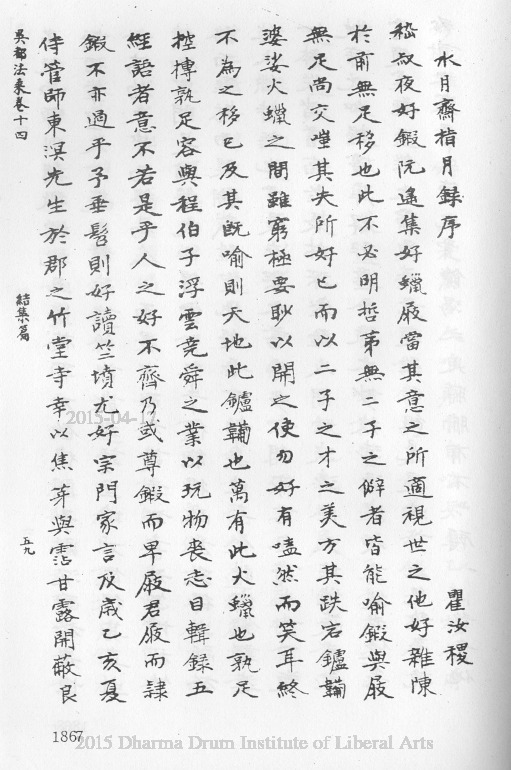 水月齋指月錄序
瞿汝稷
嵇叔夜好鍛阮遙集好蠟屐當其意之所適視世之他好雜陳
於甫無足移也此不必明哲第無二子之僻者皆能喻鍛與屐
無足尚交嗤其夫所好已而以二子之才之美方其跌宕鑪韛
婆娑火蠟之間雖窮極要眇以開之使勿好有嗑然而笑耳終
不為之移已及其既喻則天地此鑪韛也萬有此火蠟也孰足
控摶孰足容與程伯子浮雲堯舜之業以玩物喪志目輯錄五
經語者意不若是乎人之好不齊乃或尊鍛而卑屐君屐而隸
鍛不亦過乎予垂髫則好讀竺墳尤好宗門家言及歲乙亥夏
侍管師東溟先生於郡之竹堂寺幸以焦芽與霑甘露開蔽良
吳都法乘卷十四
結集篇
五九
1867
2015-04-17
2015 Dharma Drum Institute of Liberal Arts